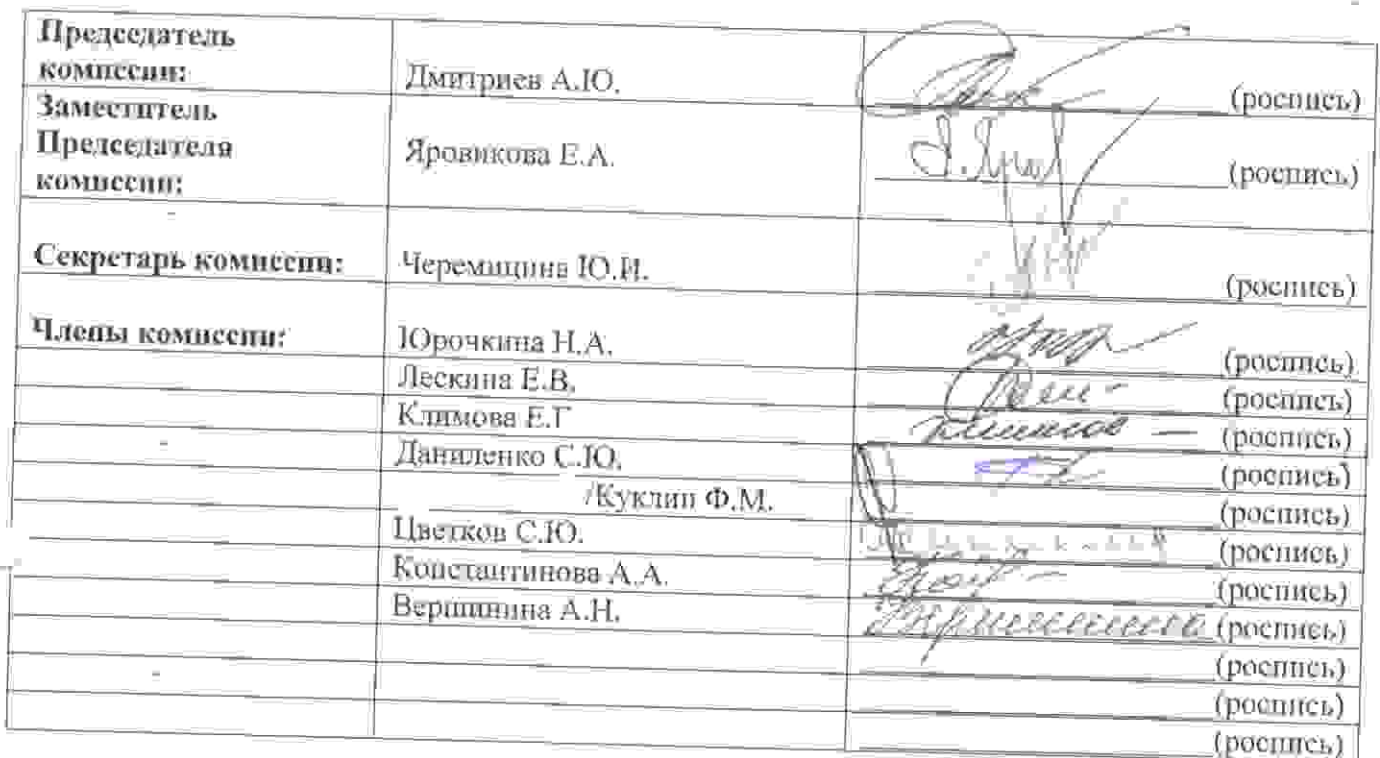 Председатель
комиссии:
Дмитриев А.Ю.
(роспись)
Заместитель
Председателя
комиссии:
Яровикова Е.А.
(роспись)
Секретарь комиссии:
Черемицина Ю.И.
(роспись)
Члены комиссии:
Юрочкина Н.А.
(роспись)
Лескина Е.В.
(роспись)
Климова Е.Г
(роспись)
Даниленко С.Ю.
(роспись)
/Куклин Ф.М.
(роспись)
Цветков С.Ю.
(роспись)
Константинова А.А.
(роспись)
Вершинина А.Н.
(роспись)
(роспись)
(роспись)
(роспись)